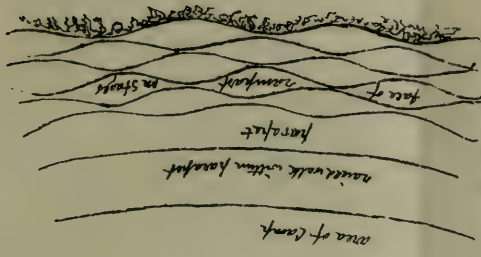 area of Camp
raised walk within parapet
parapet
face of rampart in stages